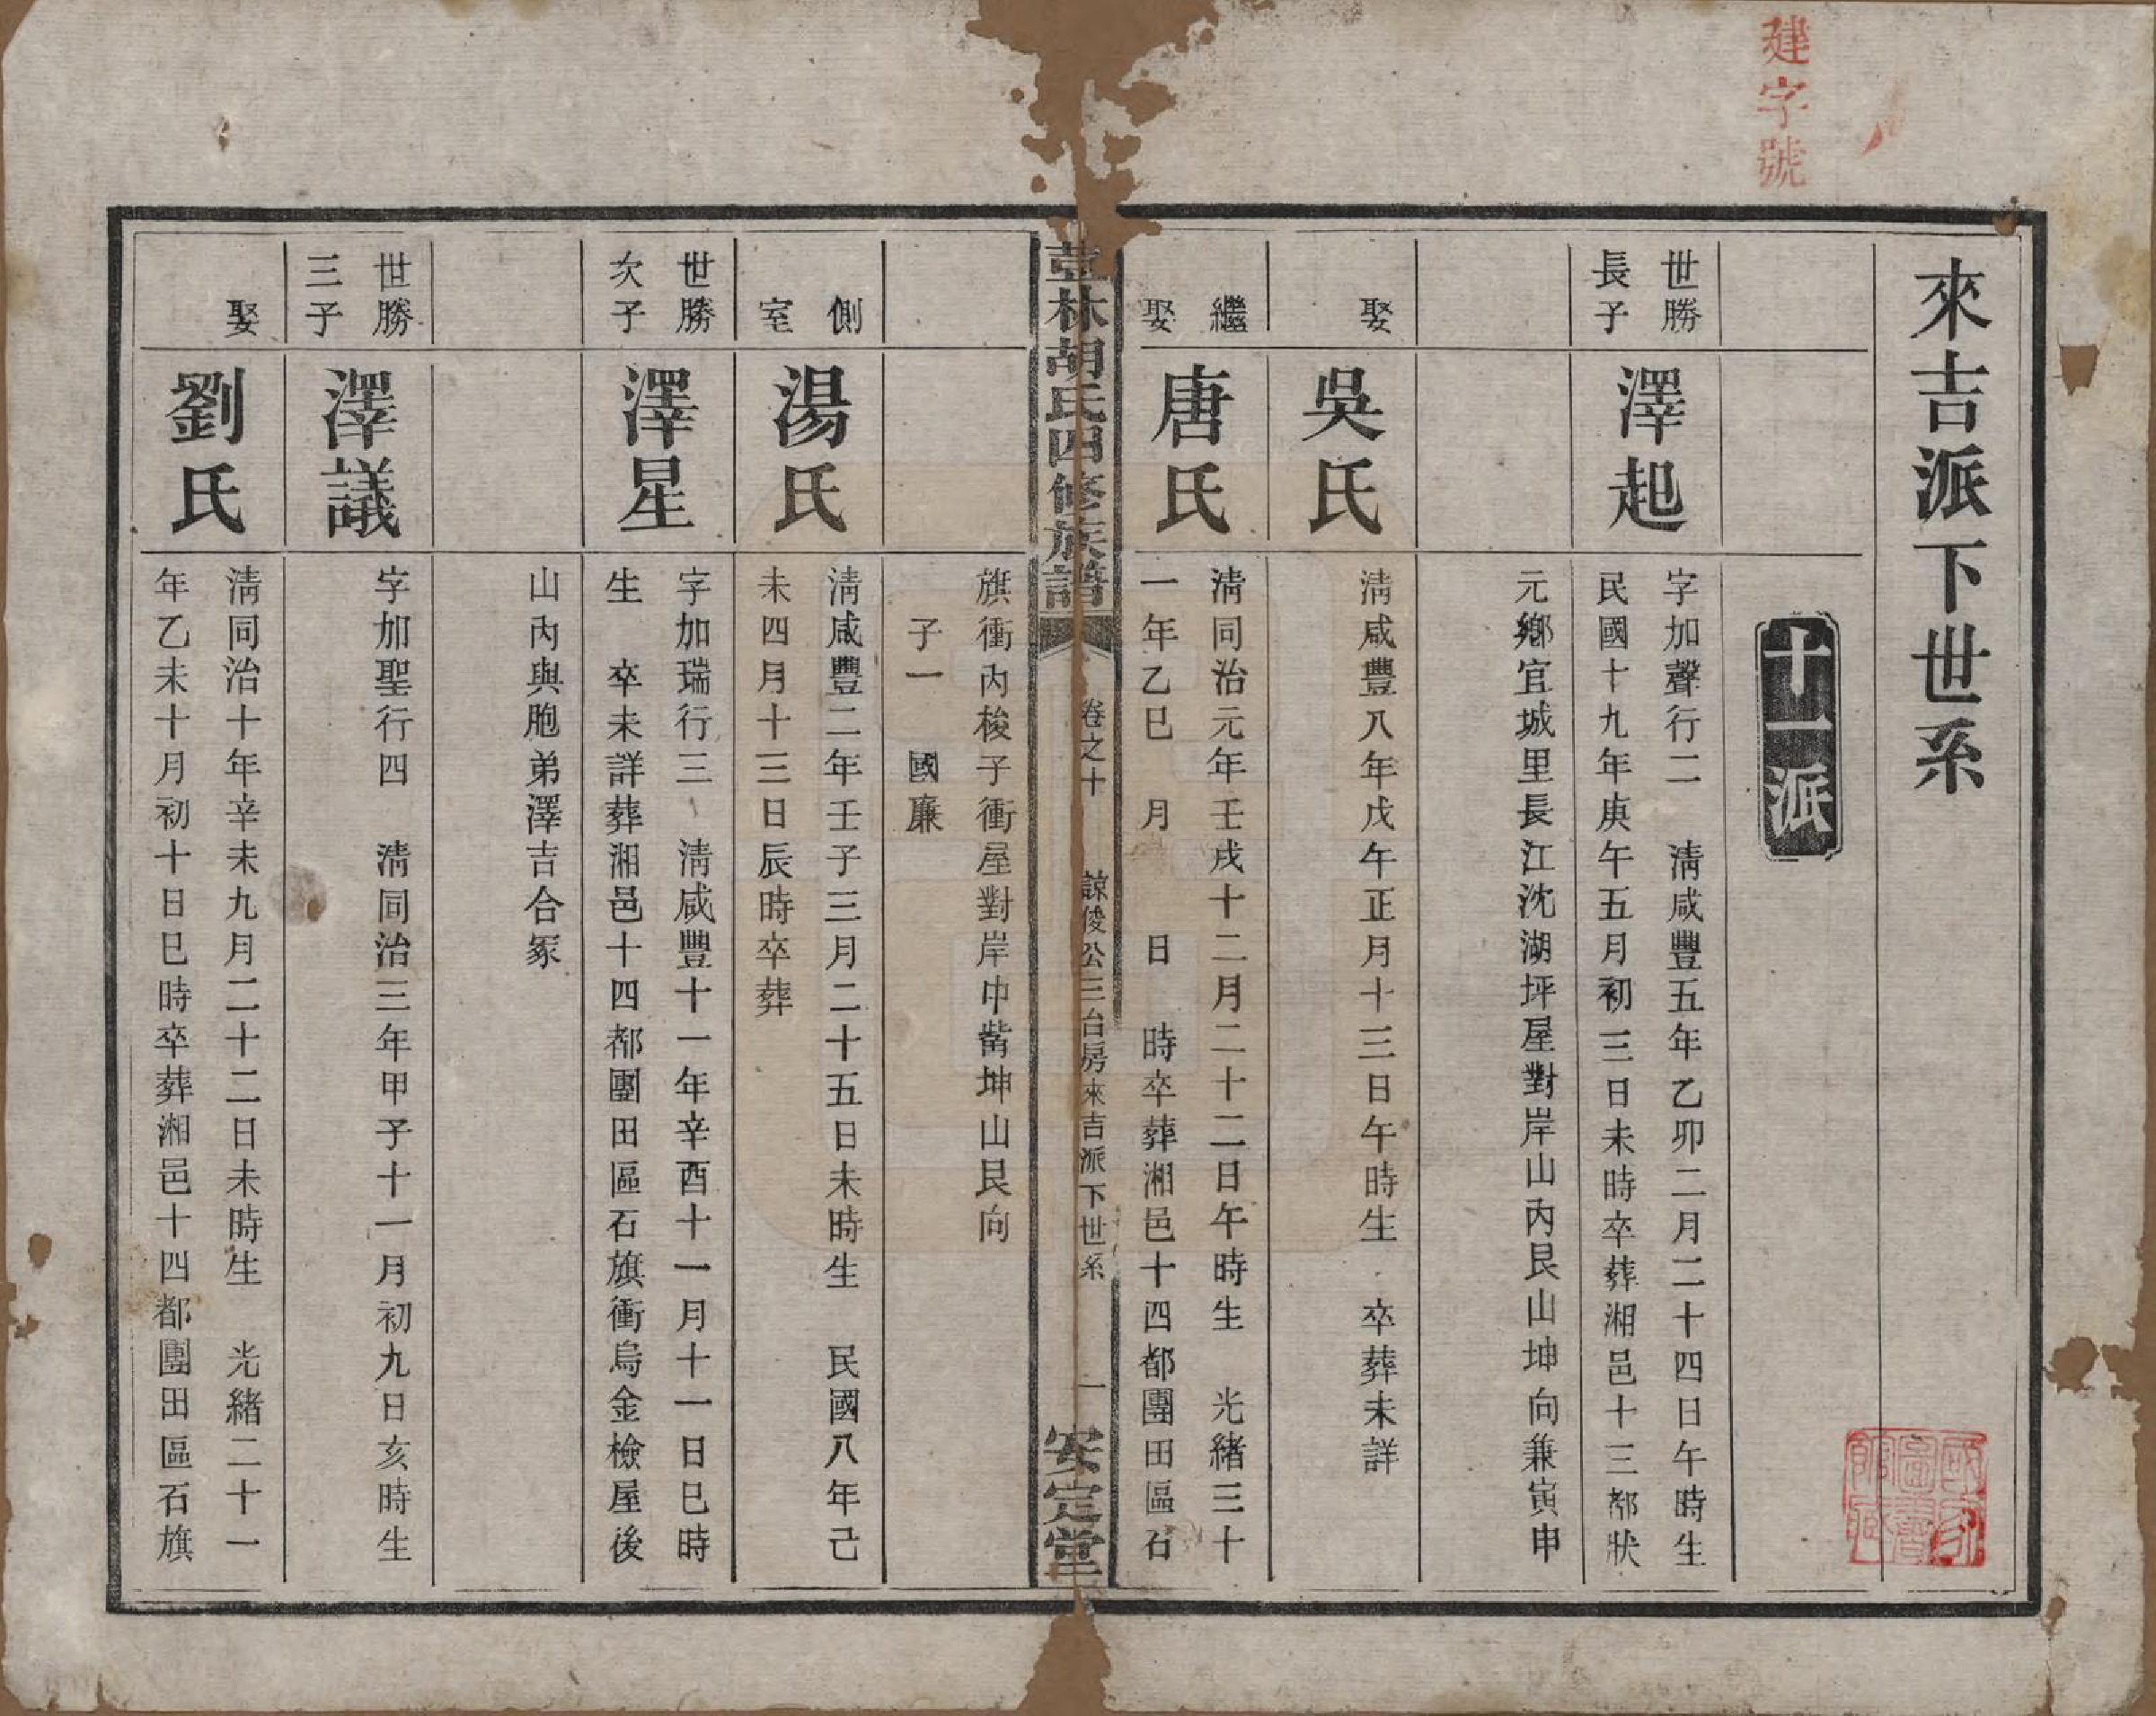 建字號
來吉派下世系
十一派
世勝
長子
澤起
字加聲行二 清咸豐五年乙卯二月二十四日午時生
民國十九年庚午五月初三日未時卒葬湘邑十三都狀
元鄉宜城里長江沈湖坪屋對岸山內艮山坤向兼寅申
娶
吳氏
清咸豐八年戊午正月十三日午時生 卒葬未詳
繼
娶
唐氏
清同治元年壬戌十二月二十二日午時生 光緒三十
一年乙巳 月 日 時卒葬湘邑十四都團田區石
林胡氏四修族譜
卷之十
諒俊公三台房來吉派下世系
一
安定堂
旗衝內梭子衝屋對岸中嘴坤山艮向
子一 國廉
側
室
湯氏
清咸豐二年壬子三月二十五日未時生 民國八年己
未四月十三日辰時卒葬
世勝
次子
澤星
字加瑞行三 清咸豐十一年辛酉十一月十一日巳時
生 卒未詳葬湘邑十四都團田區石旗衝烏金檢屋後
山內與胞弟澤吉合冢
世勝
三子
澤議
字加聖行四 清同治三年甲子十一月初九日亥時生
娶
劉氏
清同治十年辛未九月二十二日未時生 光緒二十一
年乙未十月初十日巳時卒葬湘邑十四都團田區石旗